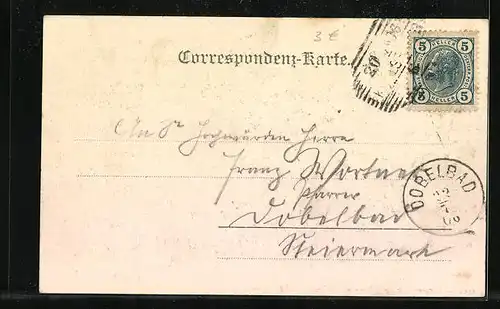 3€
Correspondenz-Karte.
5 HELLER 5
5 HELLER 5
An Sr Hochwürden Herrn
Franz Wortner
Pfarrer
Dobelbad
Steiermark
DOBELBAD